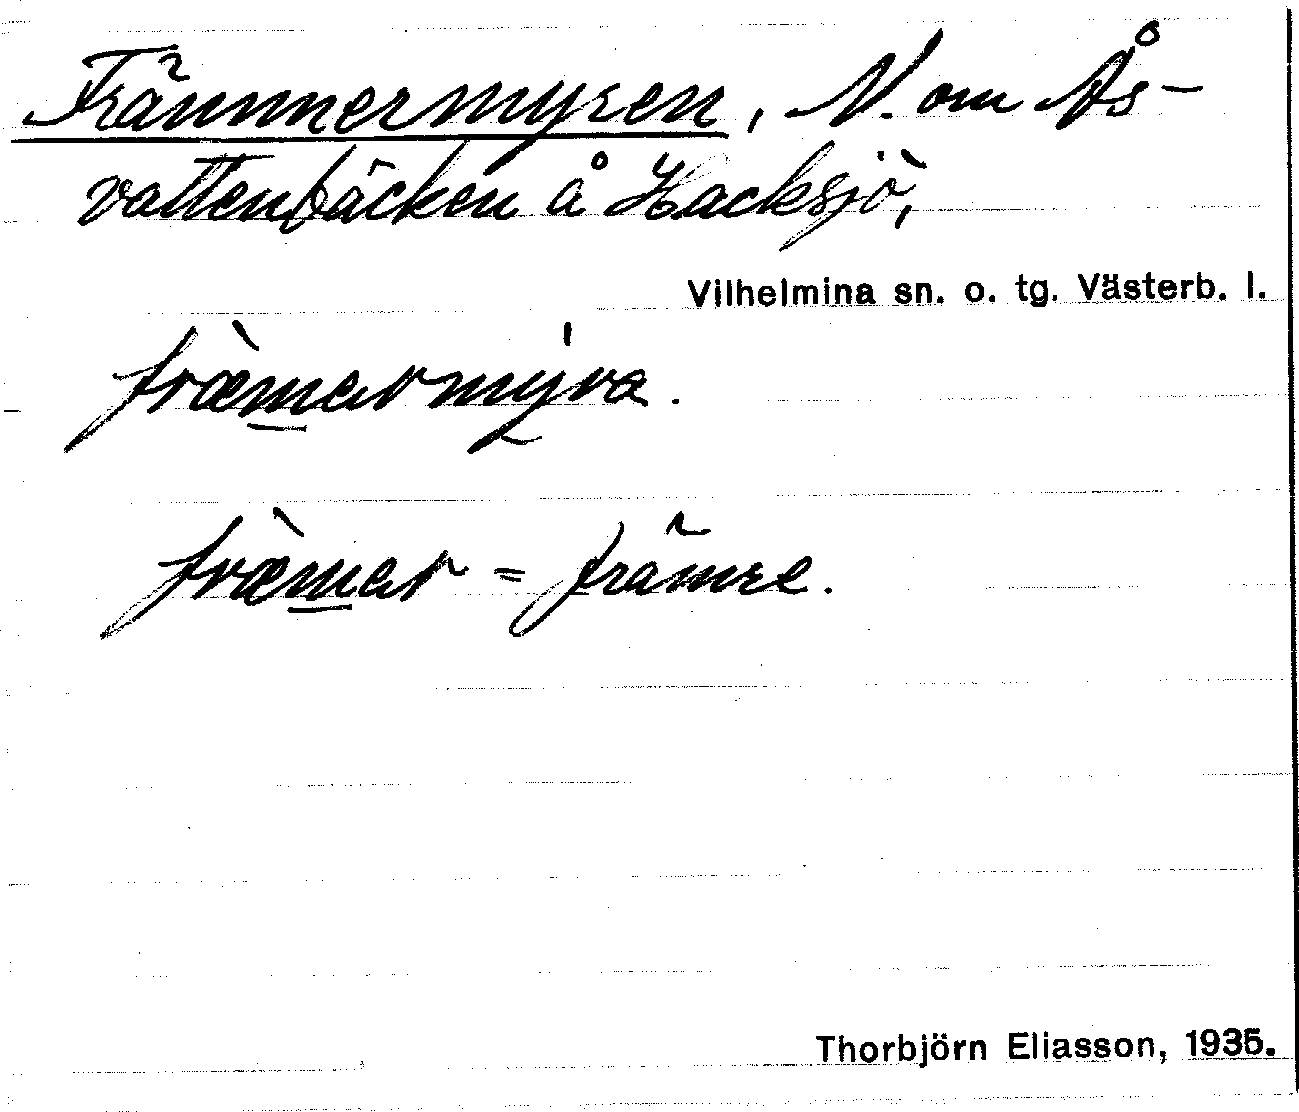 Främmermyren, N. om Ås-
vattenbäcken å Hacksjö,
Vilhelmina sn. o. tg. Västerb. l.
fræ̀mermýra.
fræ̀mer = främre.
Thorbjörn Eliasson, 1935.